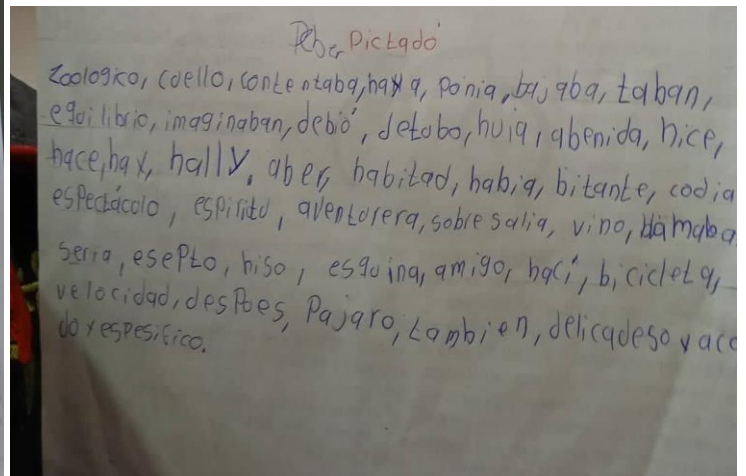 Deber Dictado
Zoologico, coello, contentaba, haya, ponia, bajaba, taban,
equilibrio, imaginaban, debió, detobo, huia, abenida, hice,
hace, hay, hally, aber, habitad, habia, bitante, codia
espectácolo, espirito, aventorera, sobresalia, vino, llamaba
seria, esepto, hiso, esquina, amigo, hací, bicicleta,
velocidad, despoes, Pajaro, tambien, delicadeso y aco
do y espesifico.